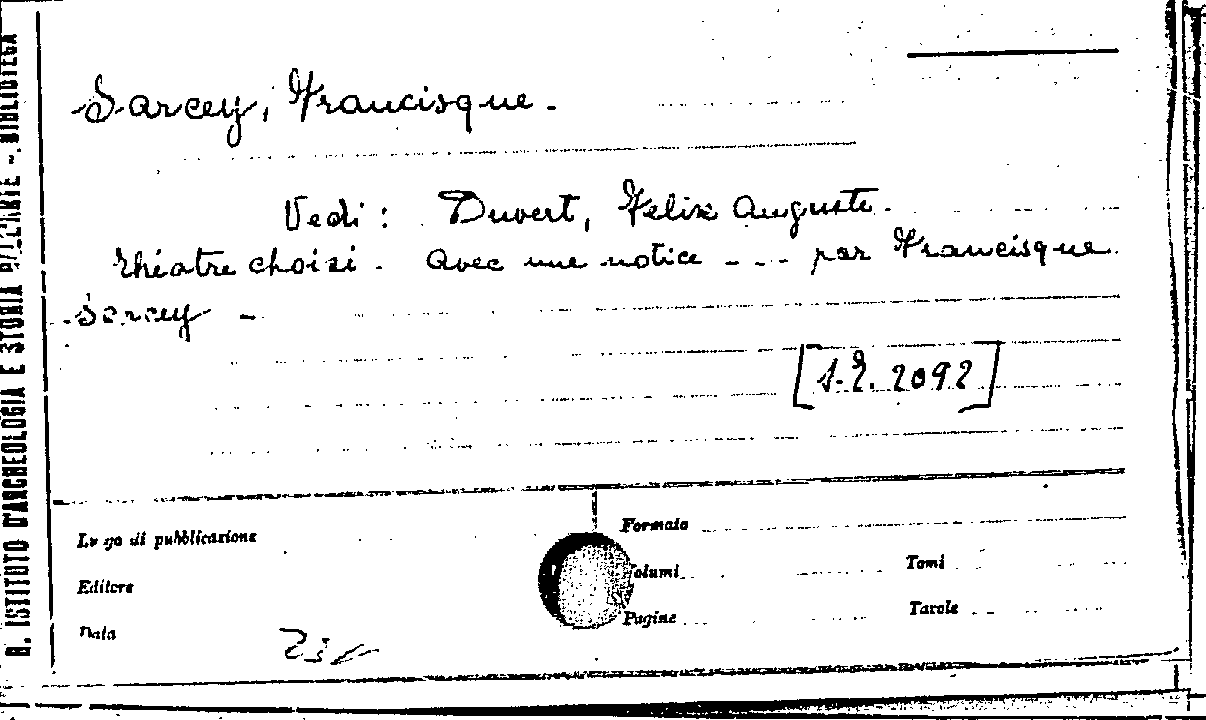 R. ISTITUTO D'ARCHEOLOGIA E STORIA DELL'ARTE - BIBLIOTECA
Sarcey, Francisque.
Vedi: Duvert, Felix Auguste.
théatre choisi. Avec une notice --- par Francisque
Sarcey -
[1.2.2092]
Luogo di pubblicazione
Formato
Editore
Volumi
Tomi
Data
Pagine
Tavole